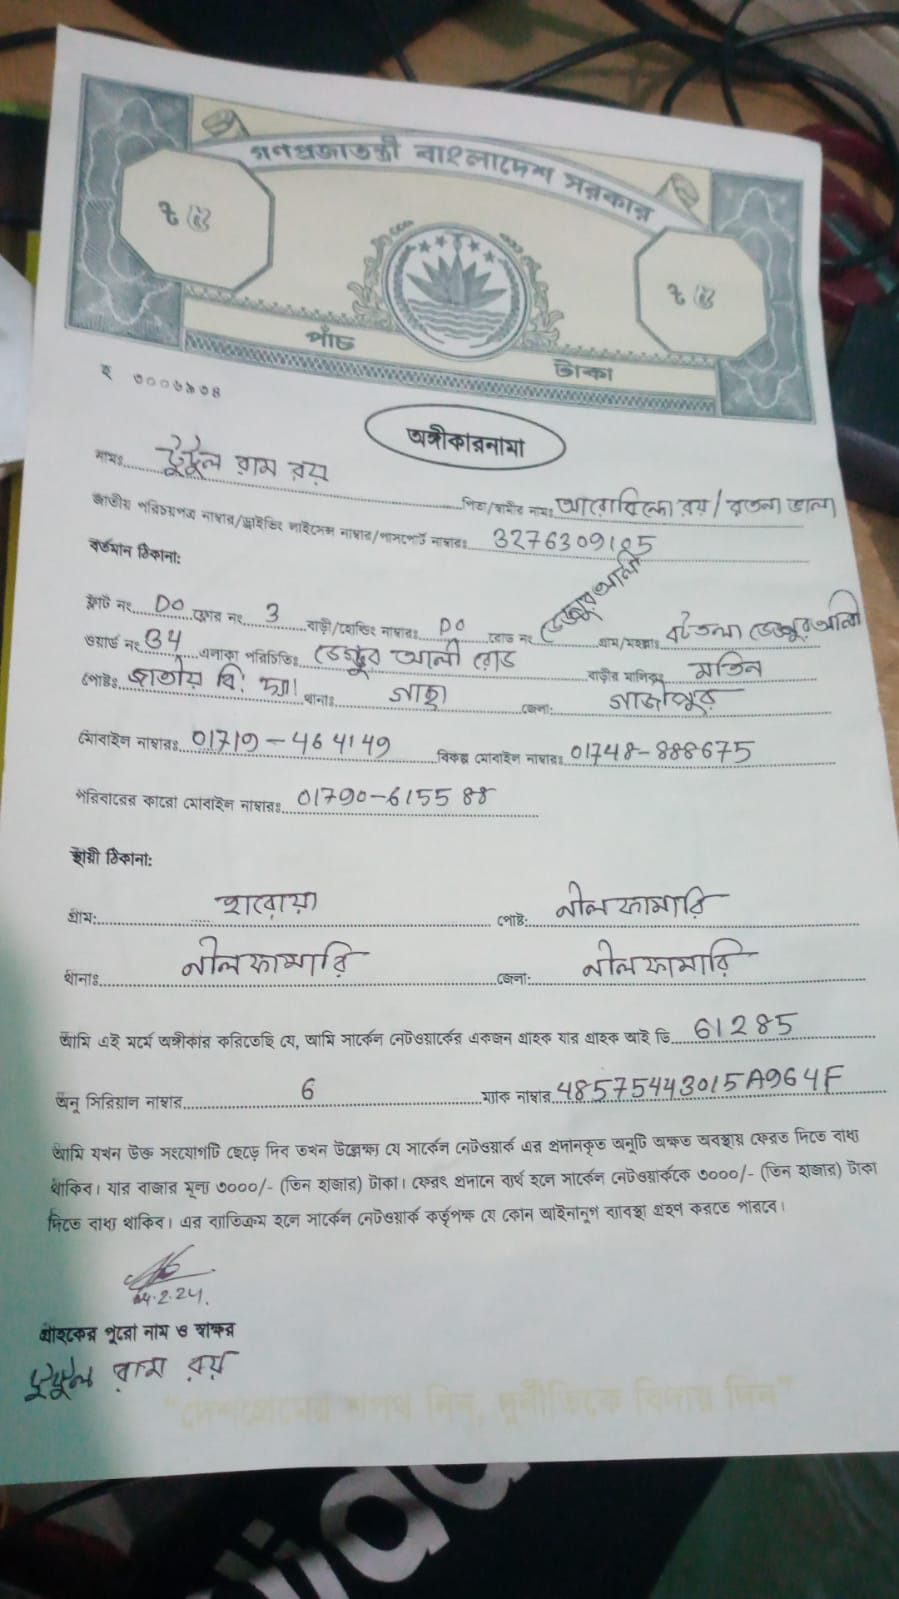 গণপ্রজাতন্ত্রী বাংলাদেশ সরকার
৳ ৫ ৳ ৫
পাঁচ টাকা
অঙ্গীকারনামা
নামঃ টুটুল রাম রয় পিতা/স্বামীর নামঃ রয় / রতনা
জাতীয় পরিচয়পত্র নাম্বার/ড্রাইভিং লাইসেন্স নাম্বার/পাসপোর্ট নাম্বারঃ 3276309105
বর্তমান ঠিকানা:
ফ্লাট নং DO ফ্লোর নং 3 বাড়ী/হোল্ডিং নাম্বারঃ DO রোড নং গ্রাম/মহল্লাঃ বটতলা
ওয়ার্ড নং 34 এলাকা পরিচিতিঃ আলী রোড বাড়ীর মালিকঃ মতিন
পোষ্টঃ জাতীয় বি: থানাঃ গাছা জেলা: গাজীপুর
মোবাইল নাম্বারঃ 01719-464149 বিকল্প মোবাইল নাম্বারঃ 01748-888675
পরিবারের কারো মোবাইল নাম্বারঃ 01790-615588
স্থায়ী ঠিকানা:
গ্রাম: হারোয়া পোষ্ট: নীলফামারি
থানাঃ নীলফামারি জেলা: নীলফামারি
আমি এই মর্মে অঙ্গীকার করিতেছি যে, আমি সার্কেল নেটওয়ার্কের একজন গ্রাহক যার গ্রাহক আই ডি 61285
অনু সিরিয়াল নাম্বার 6 ম্যাক নাম্বার 48575443015A964F
আমি যখন উক্ত সংযোগটি ছেড়ে দিব তখন উল্লেক্ষ্য যে সার্কেল নেটওয়ার্ক এর প্রদানকৃত অনুটি অক্ষত অবস্থায় ফেরত দিতে বাধ্য
থাকিব। যার বাজার মূল্য ৩০০০/- (তিন হাজার) টাকা। ফেরৎ প্রদানে ব্যর্থ হলে সার্কেল নেটওয়ার্ককে ৩০০০/- (তিন হাজার) টাকা
দিতে বাধ্য থাকিব। এর ব্যতিক্রম হলে সার্কেল নেটওয়ার্ক কর্তৃপক্ষ যে কোন আইনানুগ ব্যাবস্থা গ্রহণ করতে পারবে।
04.2.24.
গ্রাহকের পূরো নাম ও স্বাক্ষর
টুটুল রাম রয়
"দেশপ্রেমের শপথ নিন, দুর্নীতিকে বিদায় দিন"